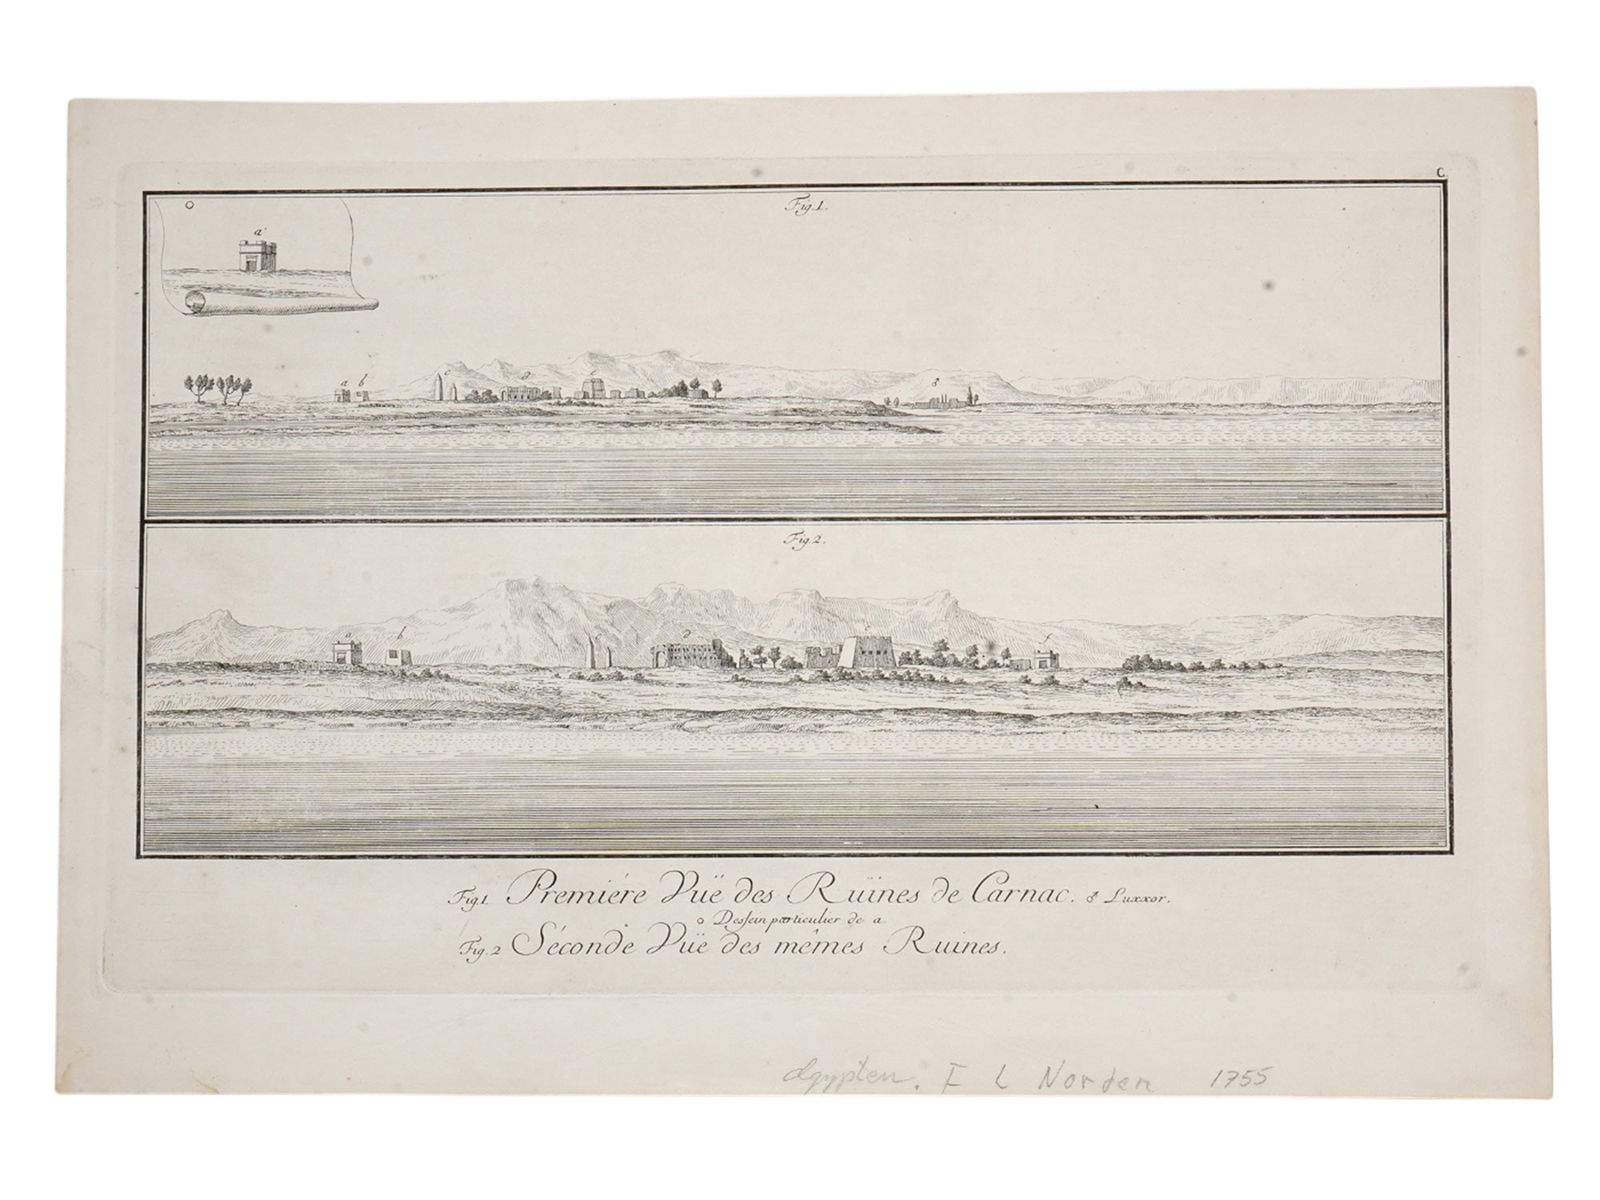 C
Fig. 1.
a
a b c d e ♂
Fig. 2.
a b c d e f
Fig. 1 Premiére Vuë des Ruïnes de Carnac. ♂ Luxxor.
o Dessein particulier de a
Fig. 2 Séconde Vuë des mêmes Ruines.
Ägypten. F L Norden 1755